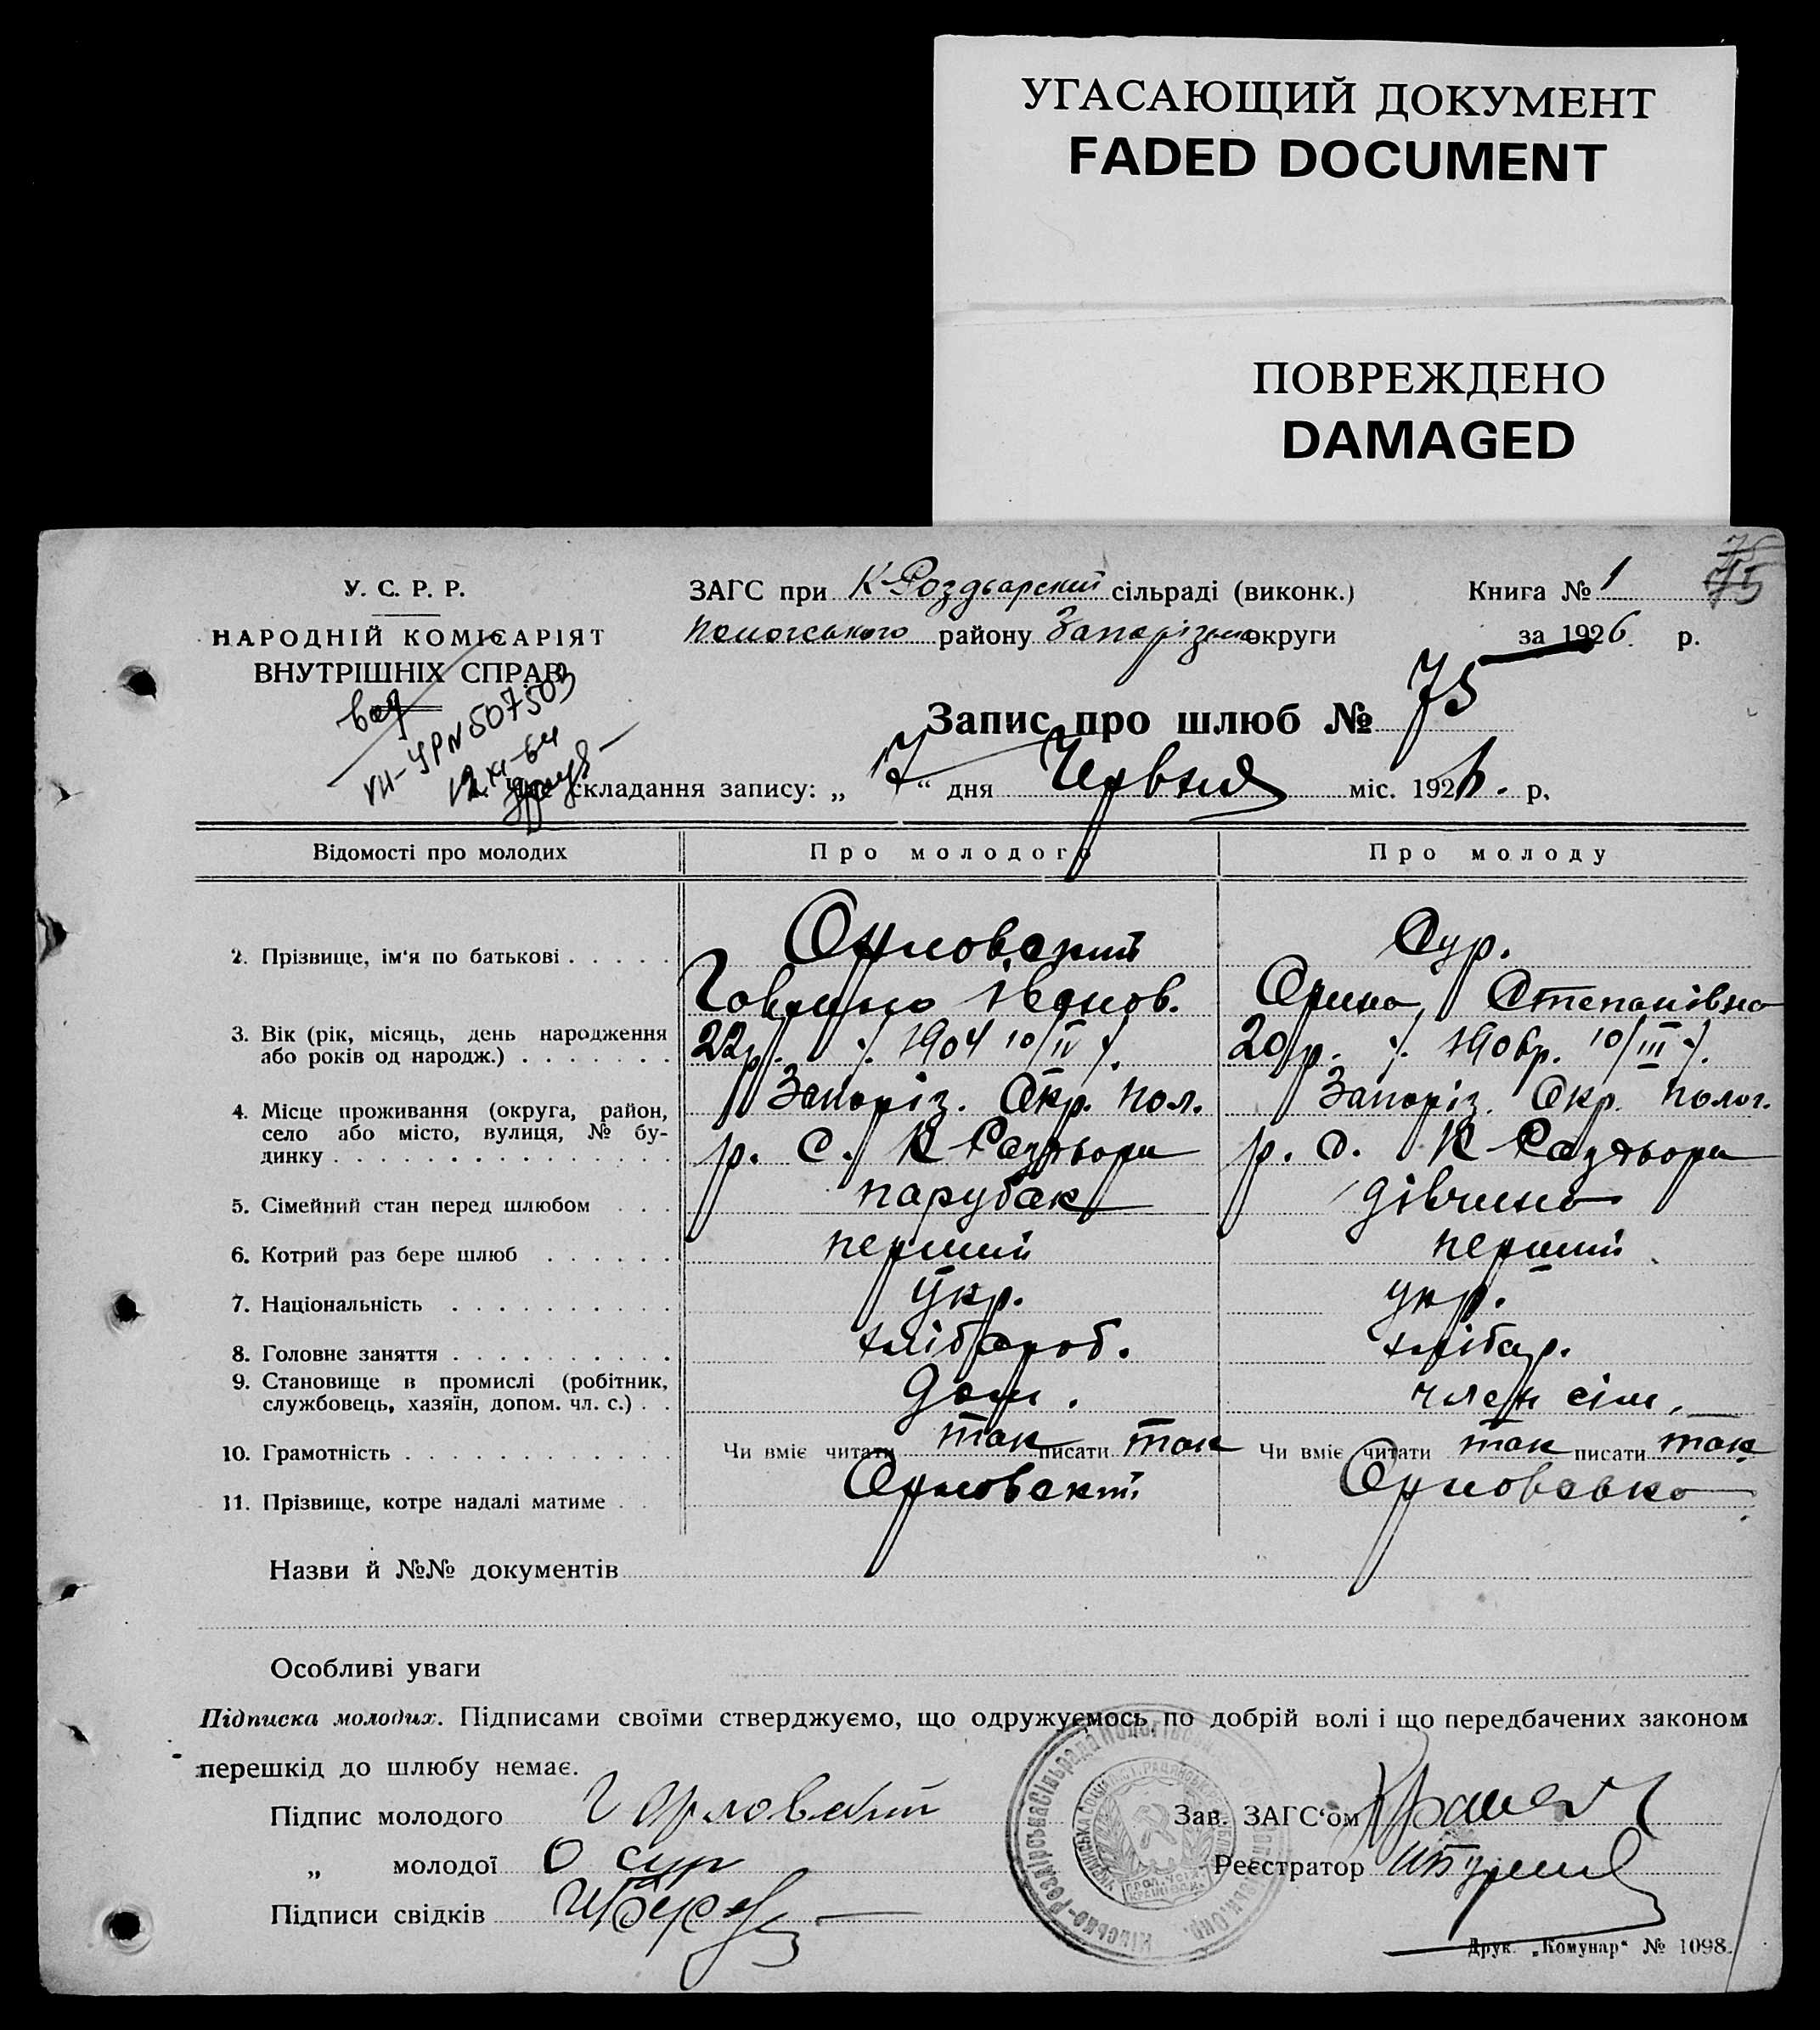 УГАСАЮЩИЙ ДОКУМЕНТ
FADED DOCUMENT
ПОВРЕЖДЕНО
DAMAGED
У. С. Р. Р.
НАРОДНІЙ КОМІСАРІЯТ
ВНУТРІШНІХ СПРАВ
ЗАГС при К-Роздьорский сільраді (виконк.)
Пологського району Запорізько округи
Книга № 1
75
за 1926 р.
VII-УР N 507503
12.XI-64
Запис про шлюб № 75
складання запису: „ 7 “ дня Червня міс. 1926. р.
Відомості про молодих Про молодого Про молоду
2. Прізвище, ім'я по батькові Орловский Сур.
Говрило Іванов. Орина Степанівна
3. Вік (рік, місяць, день народження
або років од народж.) 22р. ./. 1904 10/IV ./. 20 р. ./. 1906р. 10/III ./.
4. Місце проживання (округа, район,
село або місто, вулиця, № бу-
динку Запоріз. Окр. Пол. Запоріз. Окр. Полог.
р. С. К Раздьори р. С. К Раздьори
5. Сімейний стан перед шлюбом парубак дівчина
6. Котрий раз бере шлюб перший перший
7. Національність Укр. укр.
8. Головне заняття хлібороб. хлібор.
9. Становище в промислі (робітник,
службовець, хазяїн, допом. чл. с.) член сім.
10. Грамотність Чи вміє читати так писати так Чи вміє читати так писати так
11. Прізвище, котре надалі матиме Орловский Орловська
Назви й №№ документів
Особливі уваги
Підписка молодих. Підписами своїми стверджуємо, що одружуємось по добрій волі і що передбачених законом
перешкід до шлюбу немає.
Підпис молодого Г Орловский
„ молодої О Сур
Підписи свідків
Зав. ЗАГС'ом
Реєстратор
Кінсько-Роздірська Сільрада
Друк. „Комунар“ № 1098.